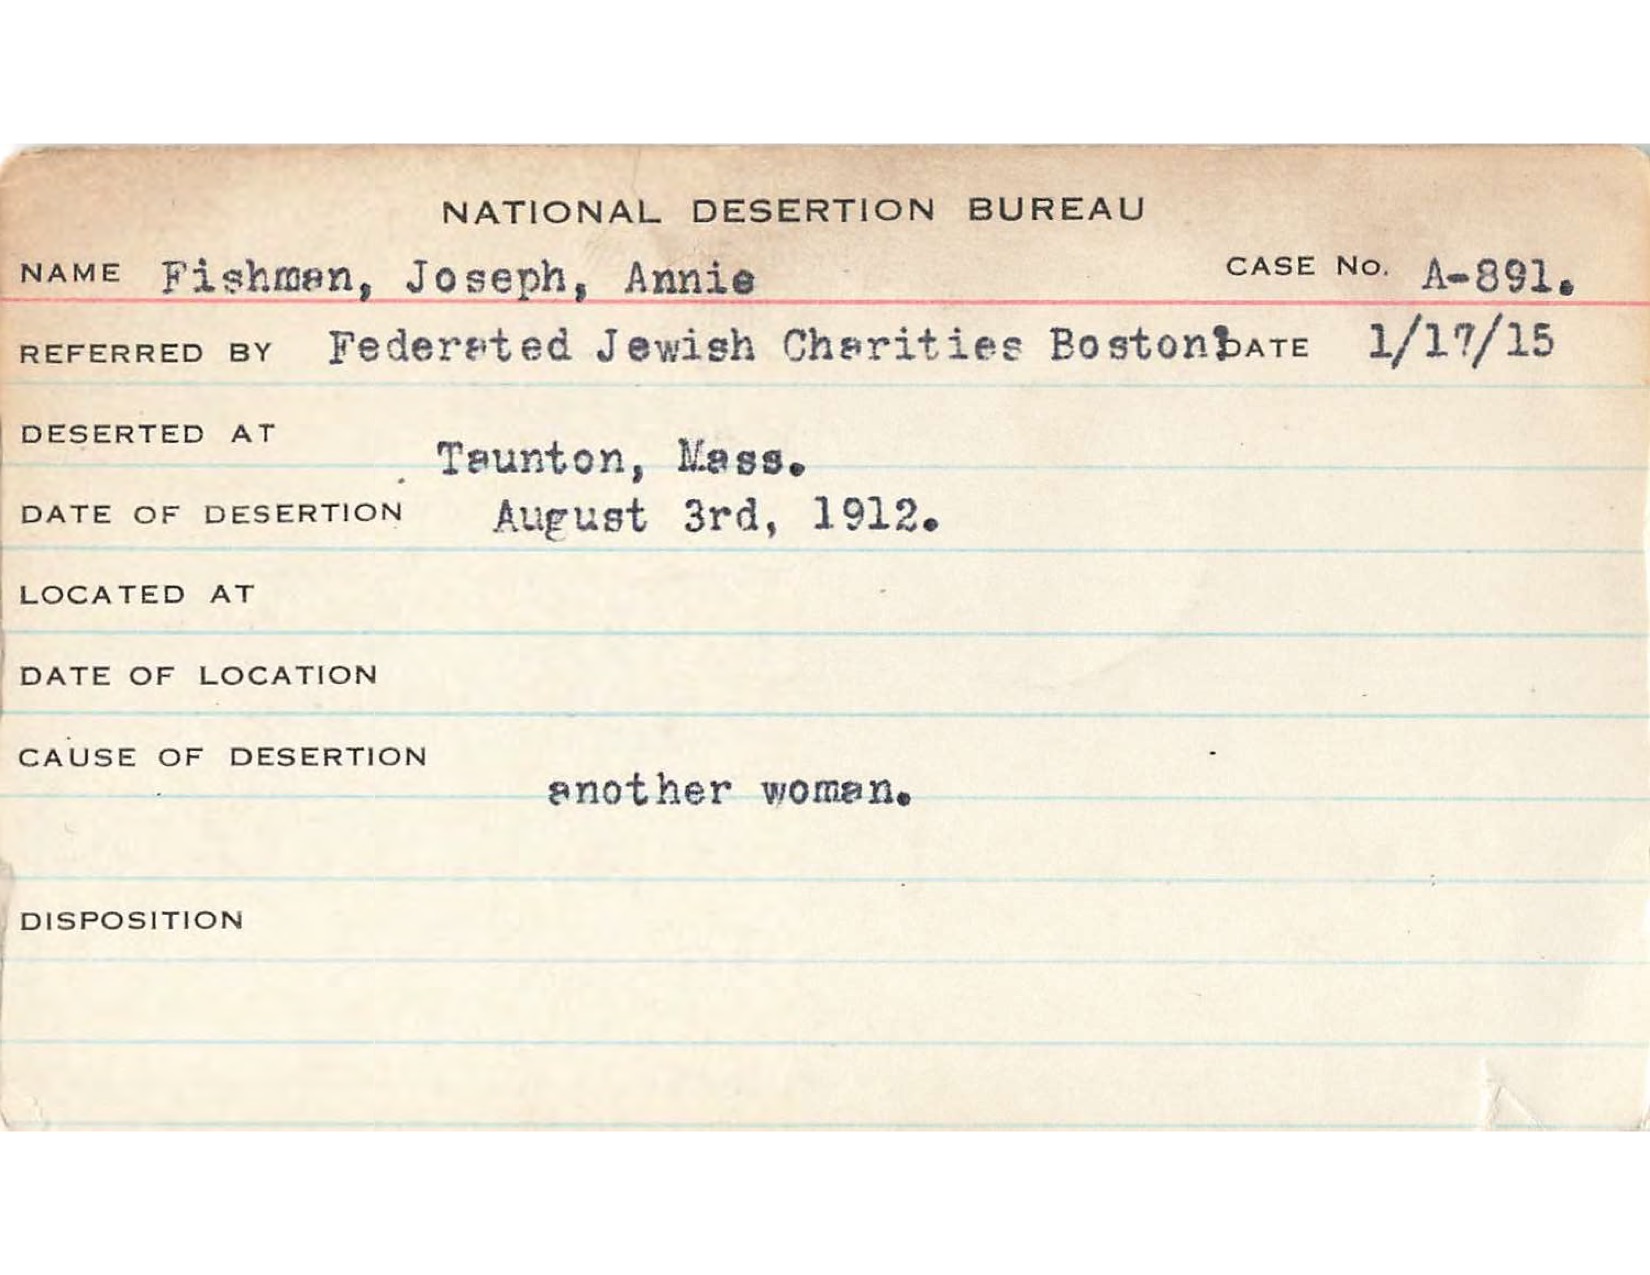 NATIONAL DESERTION BUREAU
NAME Fishman, Joseph, Annie CASE No. A-891.
REFERRED BY Federated Jewish Charities Boston DATE 1/17/15
DESERTED AT
Taunton, Mass.
DATE OF DESERTION August 3rd, 1912.
LOCATED AT
DATE OF LOCATION
CAUSE OF DESERTION
another woman.
DISPOSITION